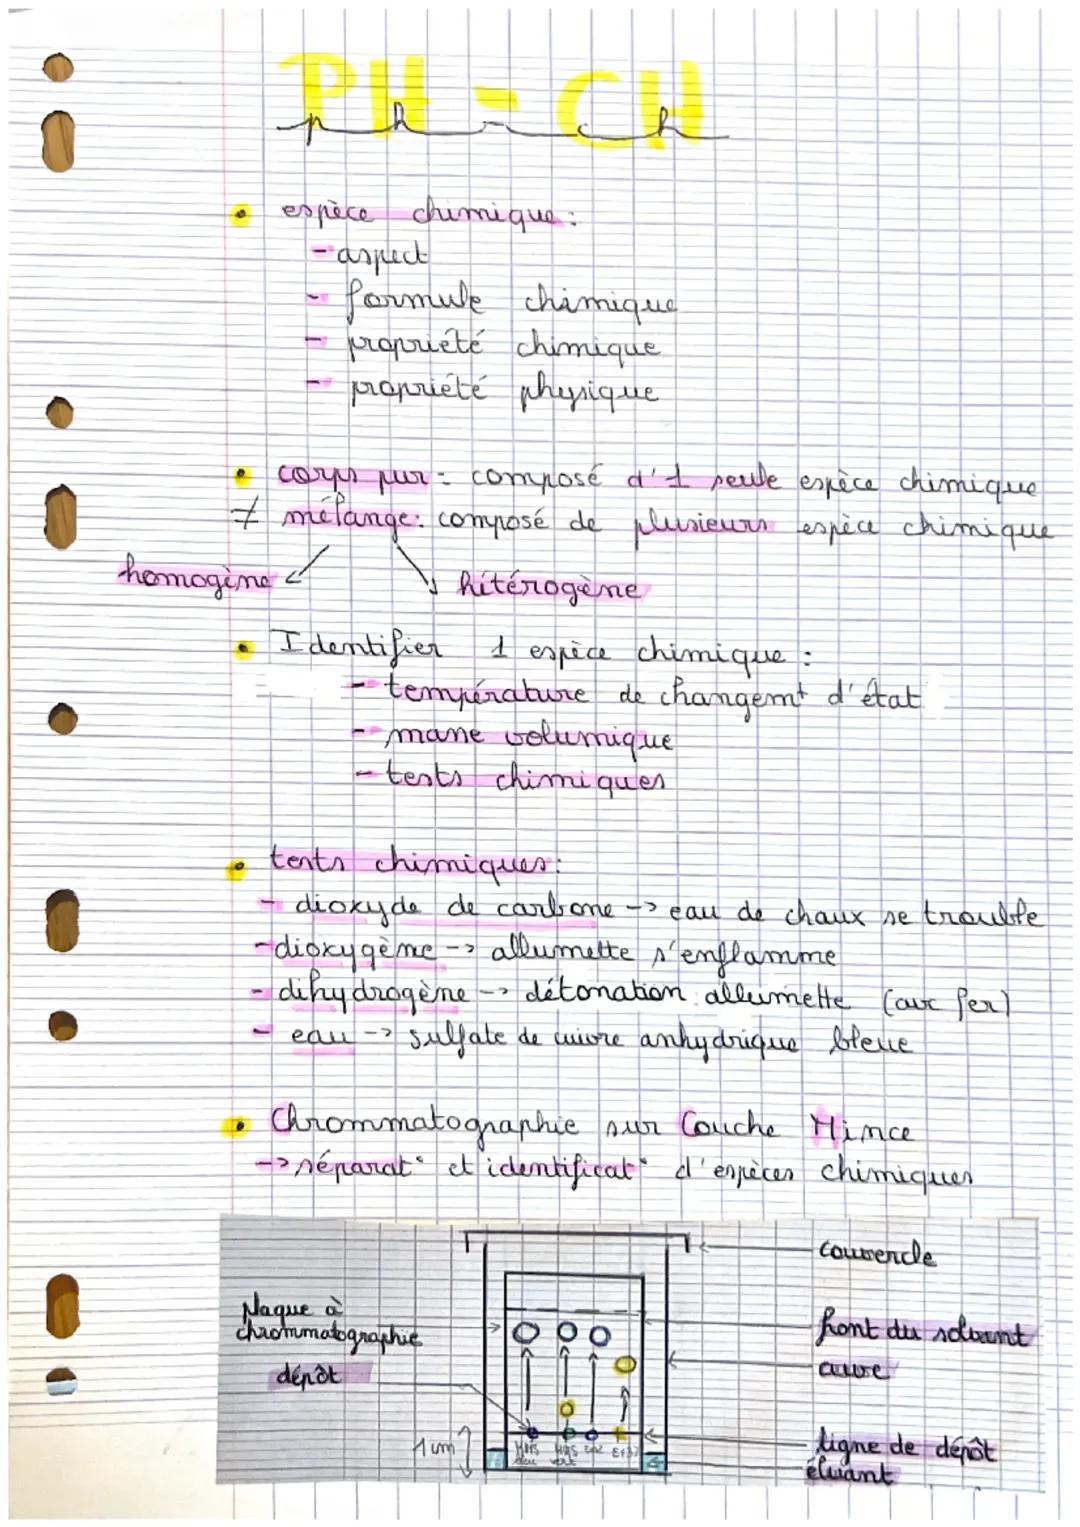 PH - CH
ph - ch
espèce chimique :
- aspect
- formule chimique
- propriété chimique
- propriété physique
corps pur : composé d'1 seule espèce chimique
≠ mélange : composé de plusieurs espèce chimique
homogène
hétérogène
Identifier 1 espèce chimique :
- température de changemt d'état
- masse volumique
- tests chimiques
tests chimiques :
- dioxyde de carbone -> eau de chaux se trouble
- dioxygène -> allumette s'enflamme
- dihydrogène -> détonation allumette (avc fer)
- eau -> sulfate de cuivre anhydrique bleue
Chrommatographie sur Couche Mince
-> séparat° et identificat° d'espèces chimiques
couvercle
Plaque à
chrommatographie
front du solvant
dépôt
cuve
1 cm
ligne de dépôt
éluant